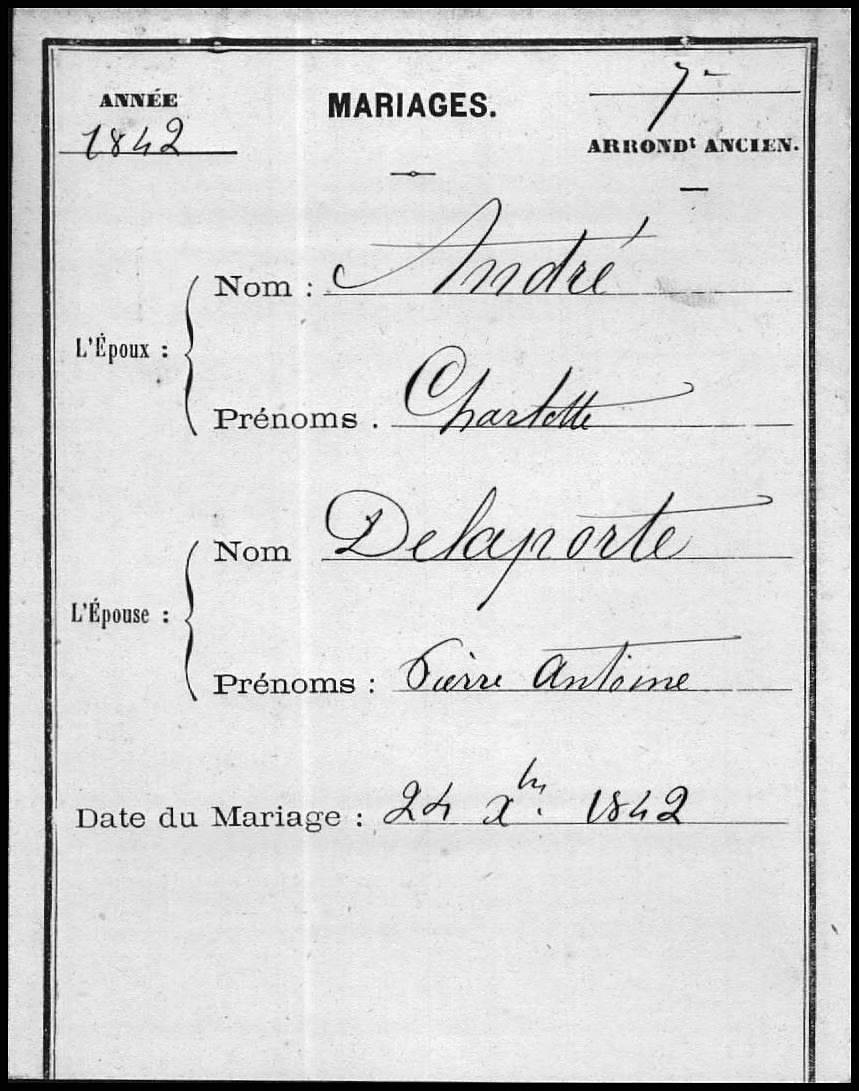 ANNÉE
1842
MARIAGES.
7e
ARRONDt ANCIEN.
L'Époux :
Nom : André
Prénoms . Charlotte
L'Épouse :
Nom Delaporte
Prénoms : Pierre Antoine
Date du Mariage : 24 xbre. 1842